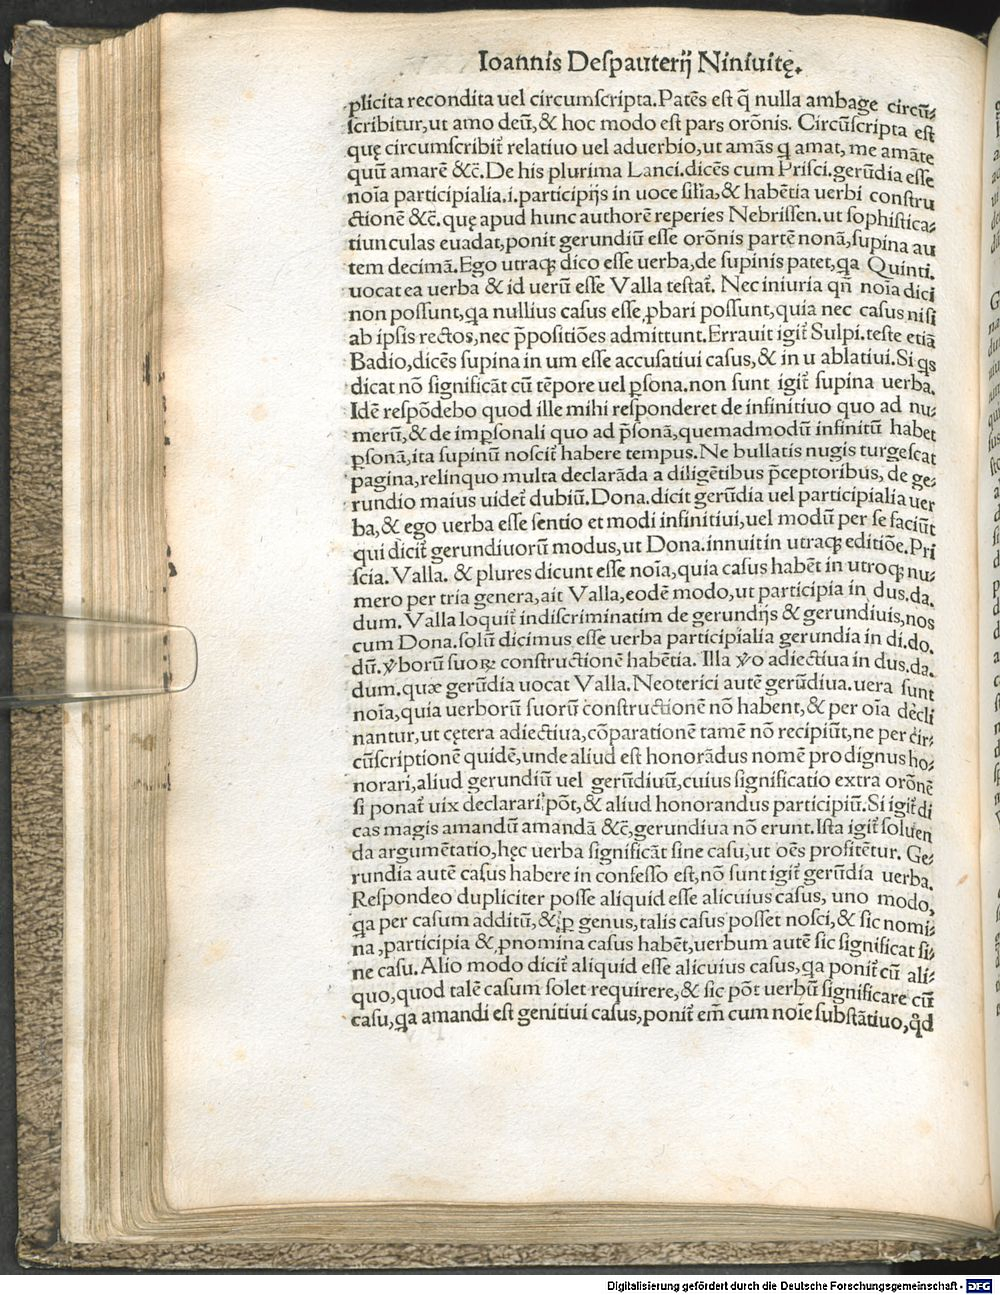 Ioannis Deſpauterij Niniuitę.
plicita recondita uel circumſcripta.Patēs eſt q̄ nulla ambage circū-
ſcribitur,ut amo deū,& hoc modo eſt pars orōnis. Circūſcripta eſt
quę circumſcribit᷑ relatiuo uel aduerbio,ut amās ꝗ amat, me amāte
quū amarē &c̄.De his plurima Lanci.dicēs cum Priſci.gerūdia eſſe
noīa participialia.i.participijs in uoce ſiľia,& habētia uerbi conſtru
ctionē &c̄.quę apud hunc authorē reperies Nebriſſen.ut ſophiſtica-
tiunculas euadat,ponit gerundiū eſſe orōnis partē nonā,ſupina au
tem decimā.Ego utraqꝫ dico eſſe uerba,de ſupinis patet,ꝗa Quinti.
uocat ea uerba & id uerū eſſe Valla teſtat᷑. Nec iniuria qn̄ noīa dici
non poſſunt,ꝗa nullius caſus eſſe ꝓbari poſſunt,quia nec caſus niſi
ab ipſis rectos,nec p̄poſitiōes admittunt.Errauit igit᷑ Sulpi.teſte etiā
Badio,dicēs ſupina in um eſſe accuſatiui caſus,& in u ablatiui.Si ꝗs
dicat nō ſignificāt cū tēpore uel ꝑſona.non ſunt igit᷑ ſupina uerba.
Idē reſpōdebo quod ille mihi reſponderet de infinitiuo quo ad nu-
merū,& de imꝑſonali quo ad p̄ſonā,quemadmodū infinitū habet
ꝑſonā,ita ſupinū noſcit᷑ habere tempus.Ne bullatis nugis turgeſcat
pagina,relinquo multa declarāda a diligētibus p̄ceptoribus, de ge-
rundio maius uidet᷑ dubiū.Dona.dicit gerūdia uel participialia uer
ba,& ego uerba eſſe ſentio et modi infinitiui,uel modū per ſe faciūt
qui dicit᷑ gerundiuorū modus,ut Dona.innuit in utraqꝫ editiōe.Pri
ſcia. Valla. & plures dicunt eſſe noīa,quia caſus habēt in utroqꝫ nu-
mero per tria genera,ait Valla,eodē modo,ut participia in dus.da.
dum. Valla loquit᷑ indiſcriminatim de gerundijs & gerundiuis,nos
cum Dona.ſolū dicimus eſſe uerba participialia gerundia in di.do.
dū.v̾borū ſuoꝝ conſtructionē habētia. Illa v̾o adiectiua in dus.da.
dum.quæ gerūdia uocat Valla.Neoterici autē gerūdiua.uera ſunt
noīa,quia uerborū ſuorū conſtructionē nō habent,& per oīa decli
nantur,ut cętera adiectiua,cōparationē tamē nō recipiūt,ne per cir-
cūſcriptionē quidē,unde aliud eſt honorādus nomē pro dignus ho-
norari,aliud gerundiū uel gerūdiuū,cuius ſignificatio extra orōnē
ſi ponat᷑ uix declarari pōt,& aliud honorandus participiū.Si igit᷑ di
cas magis amandū amandā &c̄,gerundiua nō erunt.Iſta igit᷑ ſoluen
da argumētatio,hęc uerba ſignificāt ſine caſu,ut oēs profitētur. Ge-
rundia autē caſus habere in confeſſo eſt,nō ſunt igit᷑ gerūdia uerba.
Reſpondeo dupliciter poſſe aliquid eſſe alicuius caſus, uno modo,
ꝗa per caſum additū,& ꝑ genus,talis caſus poſſet noſci,& ſic nomi-
na,participia & ꝓnomina caſus habēt,uerbum autē ſic ſignificat ſi-
ne caſu.Alio modo dicit᷑ aliquid eſſe alicuius caſus,ꝗa ponit᷑ cū ali-
quo,quod talē caſum ſolet requirere,& ſic pōt uerbū ſignificare cū
caſu,ꝗa amandi eſt genitiui caſus,ponit᷑ em̄ cum noīe ſubſtātiuo,qͦd
Digitalisierung gefördert durch die Deutsche Forschungsgemeinschaft - DFG